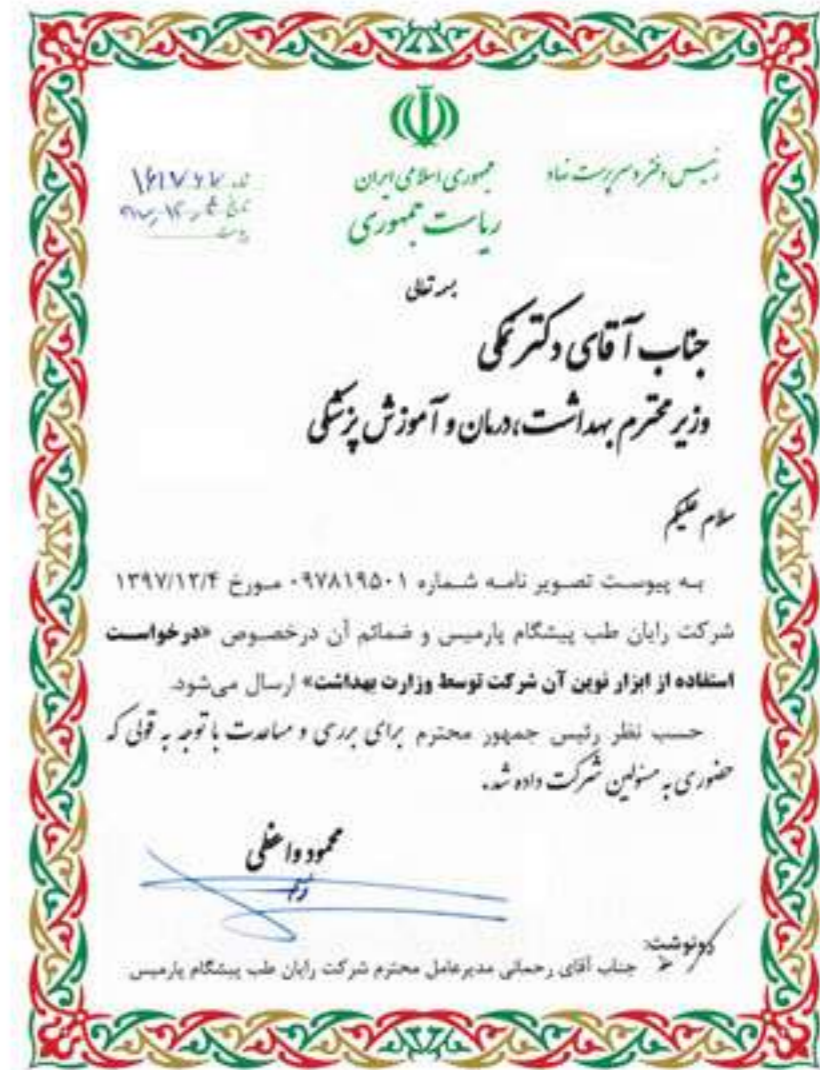 رئیس دفتر و سرپرست نهاد
جمهوری اسلامی ایران
ریاست جمهوری
بسمه تعالی
جناب آقای دکتر نمکی
وزیر محترم بهداشت، درمان و آموزش پزشکی
سلام علیکم
به پیوست تصویر نامه شماره ۰۹۷۸۱۹۵۰۱ مورخ ۱۳۹۷/۱۲/۴
شرکت رایان طب پیشگام پارمیس و ضمائم آن درخصوص «درخواست
استفاده از ابزار نوین آن شرکت توسط وزارت بهداشت» ارسال می‌شود.
حسب نظر رئیس جمهور محترم برای بررسی و مساعدت با توجه به قولی که
حضوری به مسئولین شرکت داده شد.
محمود واعظی
رونوشت:
جناب آقای رحمانی مدیرعامل محترم شرکت رایان طب پیشگام پارمیس